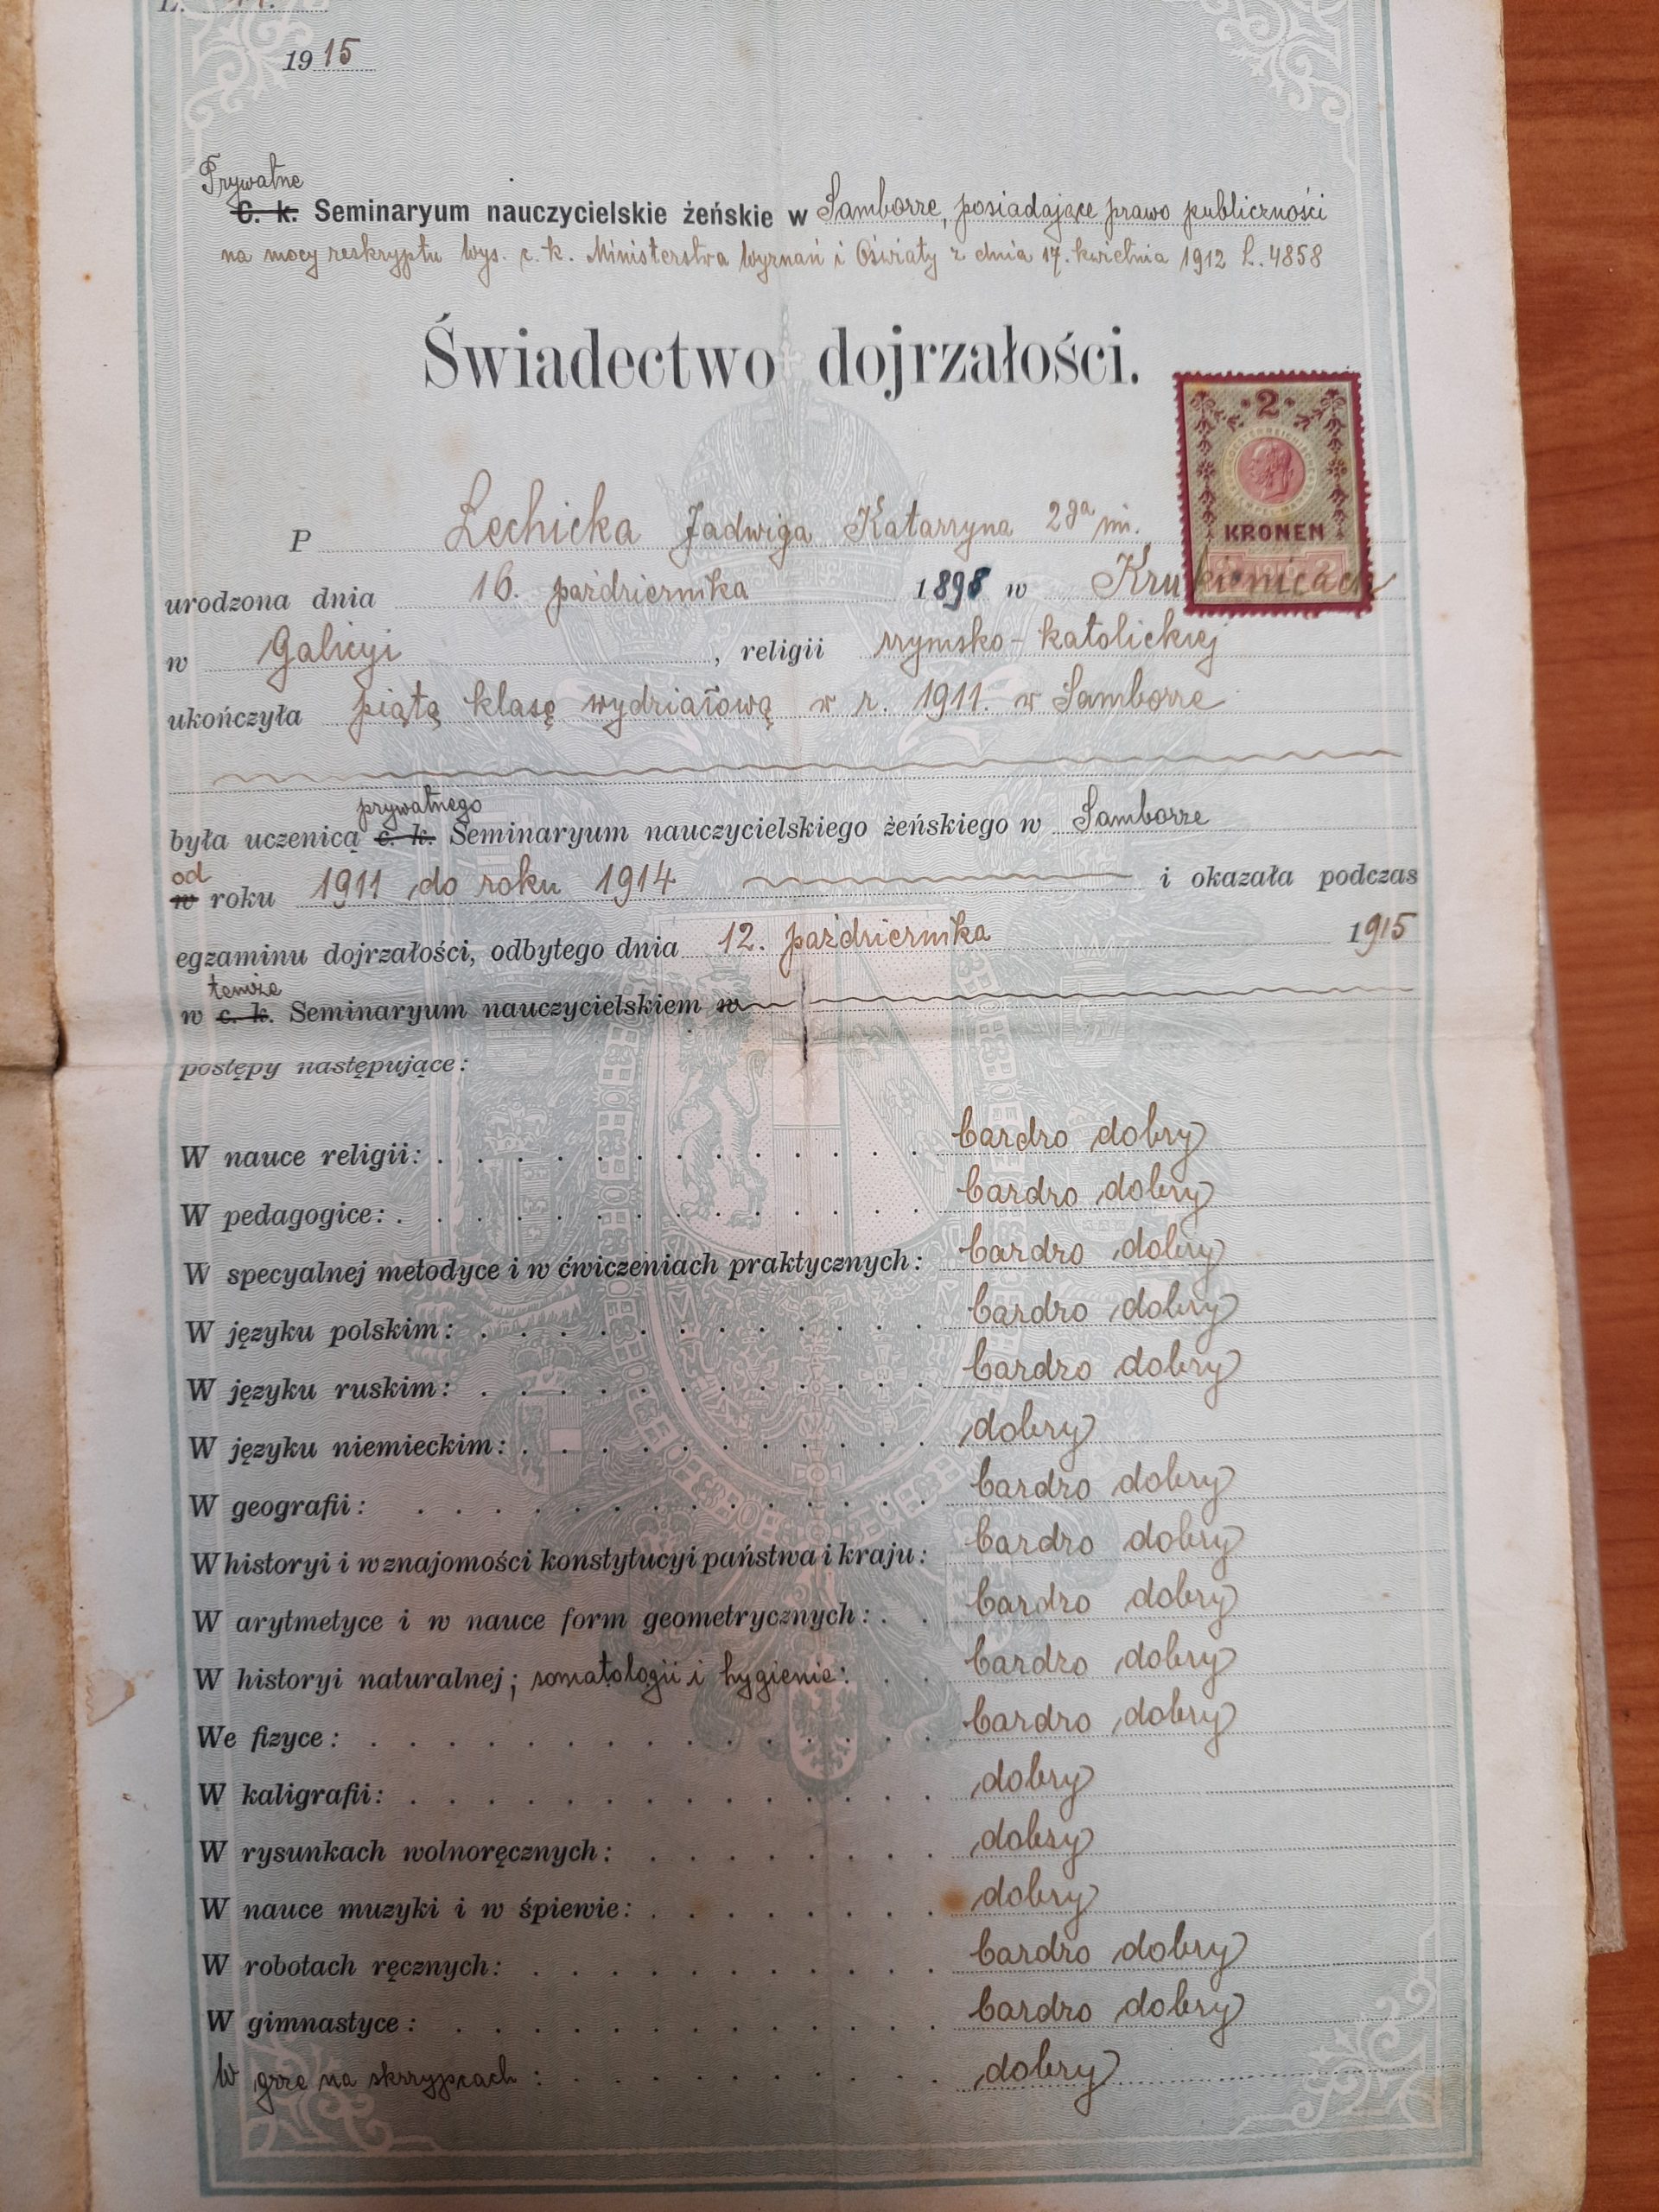 1915
Prywatne
C. k. Seminaryum nauczycielskie żeńskie w Samborze, posiadające prawo publiczności
na mocy reskryptu Wys. c. k. Ministerstwa Wyznań i Oświaty z dnia 17. kwietnia 1912 L. 4858
Świadectwo dojrzałości.
2
KRONEN
P Łechicka Jadwiga Katarzyna 2ga im.
urodzona dnia 16. października 1898 w Krukienicach
w Galicyi, religii rzymsko-katolickiej
ukończyła piątą klasę wydziałową w r. 1911. w Samborze
prywatnego
była uczenicą c. k. Seminaryum nauczycielskiego żeńskiego w Samborze
od
w roku 1911 do roku 1914 i okazała podczas
egzaminu dojrzałości, odbytego dnia 12. października 1915
temże
w c. k. Seminaryum nauczycielskiem w
postępy następujące:
W nauce religii: bardzo dobry
W pedagogice: bardzo dobry
W specyalnej metodyce i w ćwiczeniach praktycznych: bardzo dobry
W języku polskim: bardzo dobry
W języku ruskim: bardzo dobry
W języku niemieckim: dobry
W geografii: bardzo dobry
W historyi i w znajomości konstytucyi państwa i kraju: bardzo dobry
W arytmetyce i w nauce form geometrycznych: bardzo dobry
W historyi naturalnej; somatologii i hygienie: bardzo dobry
We fizyce: bardzo dobry
W kaligrafii: dobry
W rysunkach wolnoręcznych: dobry
W nauce muzyki i w śpiewie: dobry
W robotach ręcznych: bardzo dobry
W gimnastyce: bardzo dobry
W grze na skrzypcach: dobry